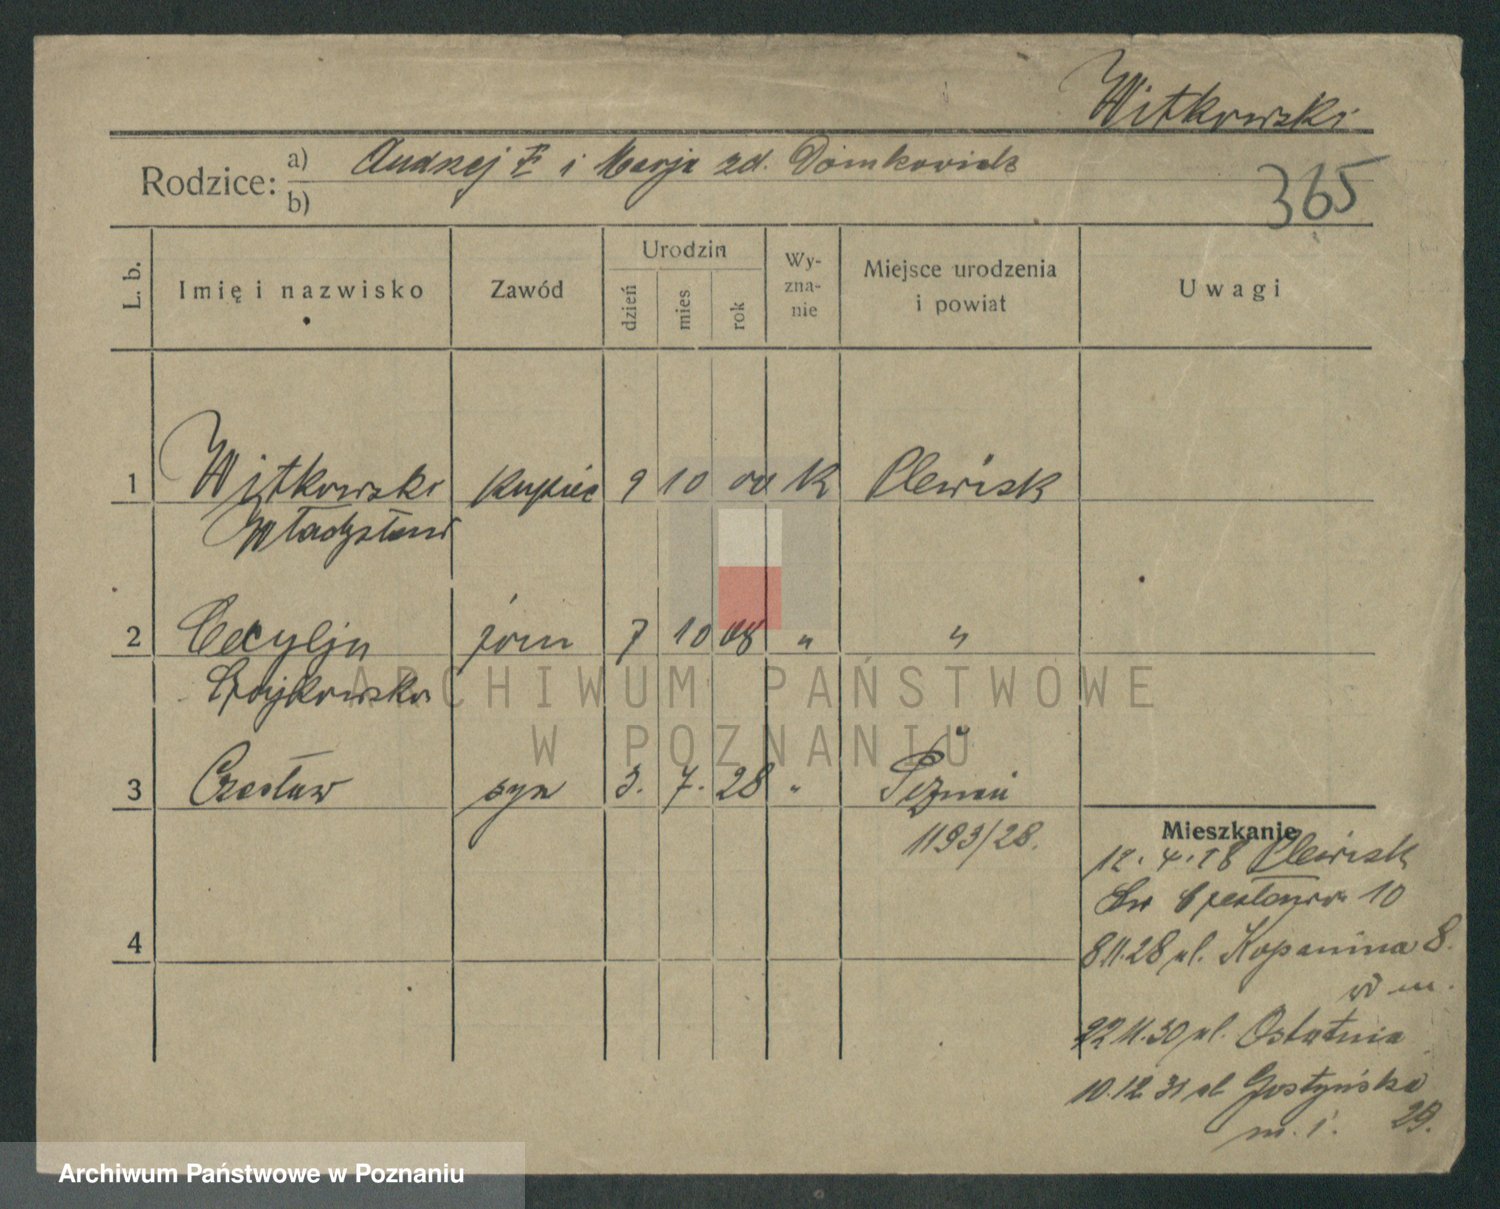 Witkowski
Rodzice: a) Andrzej i Marja zd. Domkowiak
b)
365
L. b. Imię i nazwisko Zawód Urodzin dzień mies rok Wy-zna-nie Miejsce urodzenia i powiat Uwagi
1 Witkowski kupiec 9 10 00 K Plewisk
Władysław
2 Cecylja żona 7 10 08 " "
3 Czesław syn 3. 7. 28 " Poznań
1193/28.
Mieszkanie
12. 4. 28 Plewisk
Św Czesława 10
8.11.28 ul. Kopanina 8.
m.
22.11.30 ul. Ostatnia
10.12.31 ul Gostyńska
m. 1. 29.
4
ARCHIWUM PAŃSTWOWE
W POZNANIU
Archiwum Państwowe w Poznaniu